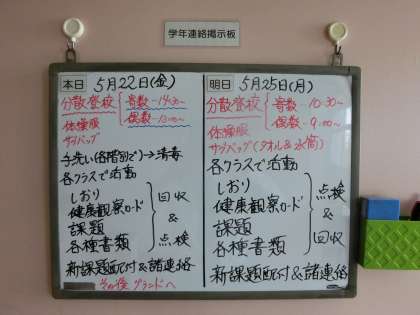 学年連絡掲示板
本日 5月22日(金)
分散登校 奇数-14:30~
偶数-13:00~
体操服
サブバッグ
手洗い(各階別で)→消毒
各クラスで活動
しおり
健康観察カード
課題
各種書類
回収
&
点検
新課題配付&諸連絡
その後グランドへ
明日 5月25日(月)
分散登校 奇数-10:30~
偶数-9:00~
体操服
サブバッグ(タオル&水筒)
各クラスで活動
しおり
健康観察カード
課題
各種書類
点検
&
回収
新課題配付&諸連絡